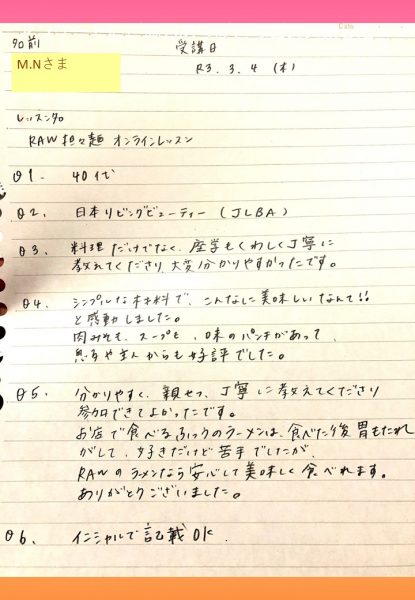 名前
受講日
M.Nさま
R3.3.4 (木)
レッスン名
RAW担々麺 オンラインレッスン
Q1. 40代
Q2. 日本リビングビューティー (JLBA)
Q3. 料理だけでなく、座学もくわしく丁寧に
教えてくださり、大変分かりやすかったです。
Q4. シンプルな材料で、こんなに美味しいなんて!!
と感動しました。
肉みそも、スープも、味のパンチがあって、
息子や主人からも好評でした。
Q5. 分かりやすく、親せつ、丁寧に教えてくださり
参加できてよかったです。
お店で食べるふつうのラーメンは、食べた後胃もたれ
がして、好きだけど苦手でしたが、
RAWのラーメンなら安心して美味しく食べれます。
ありがとうございました。
Q6. イニシャルで記載OK.